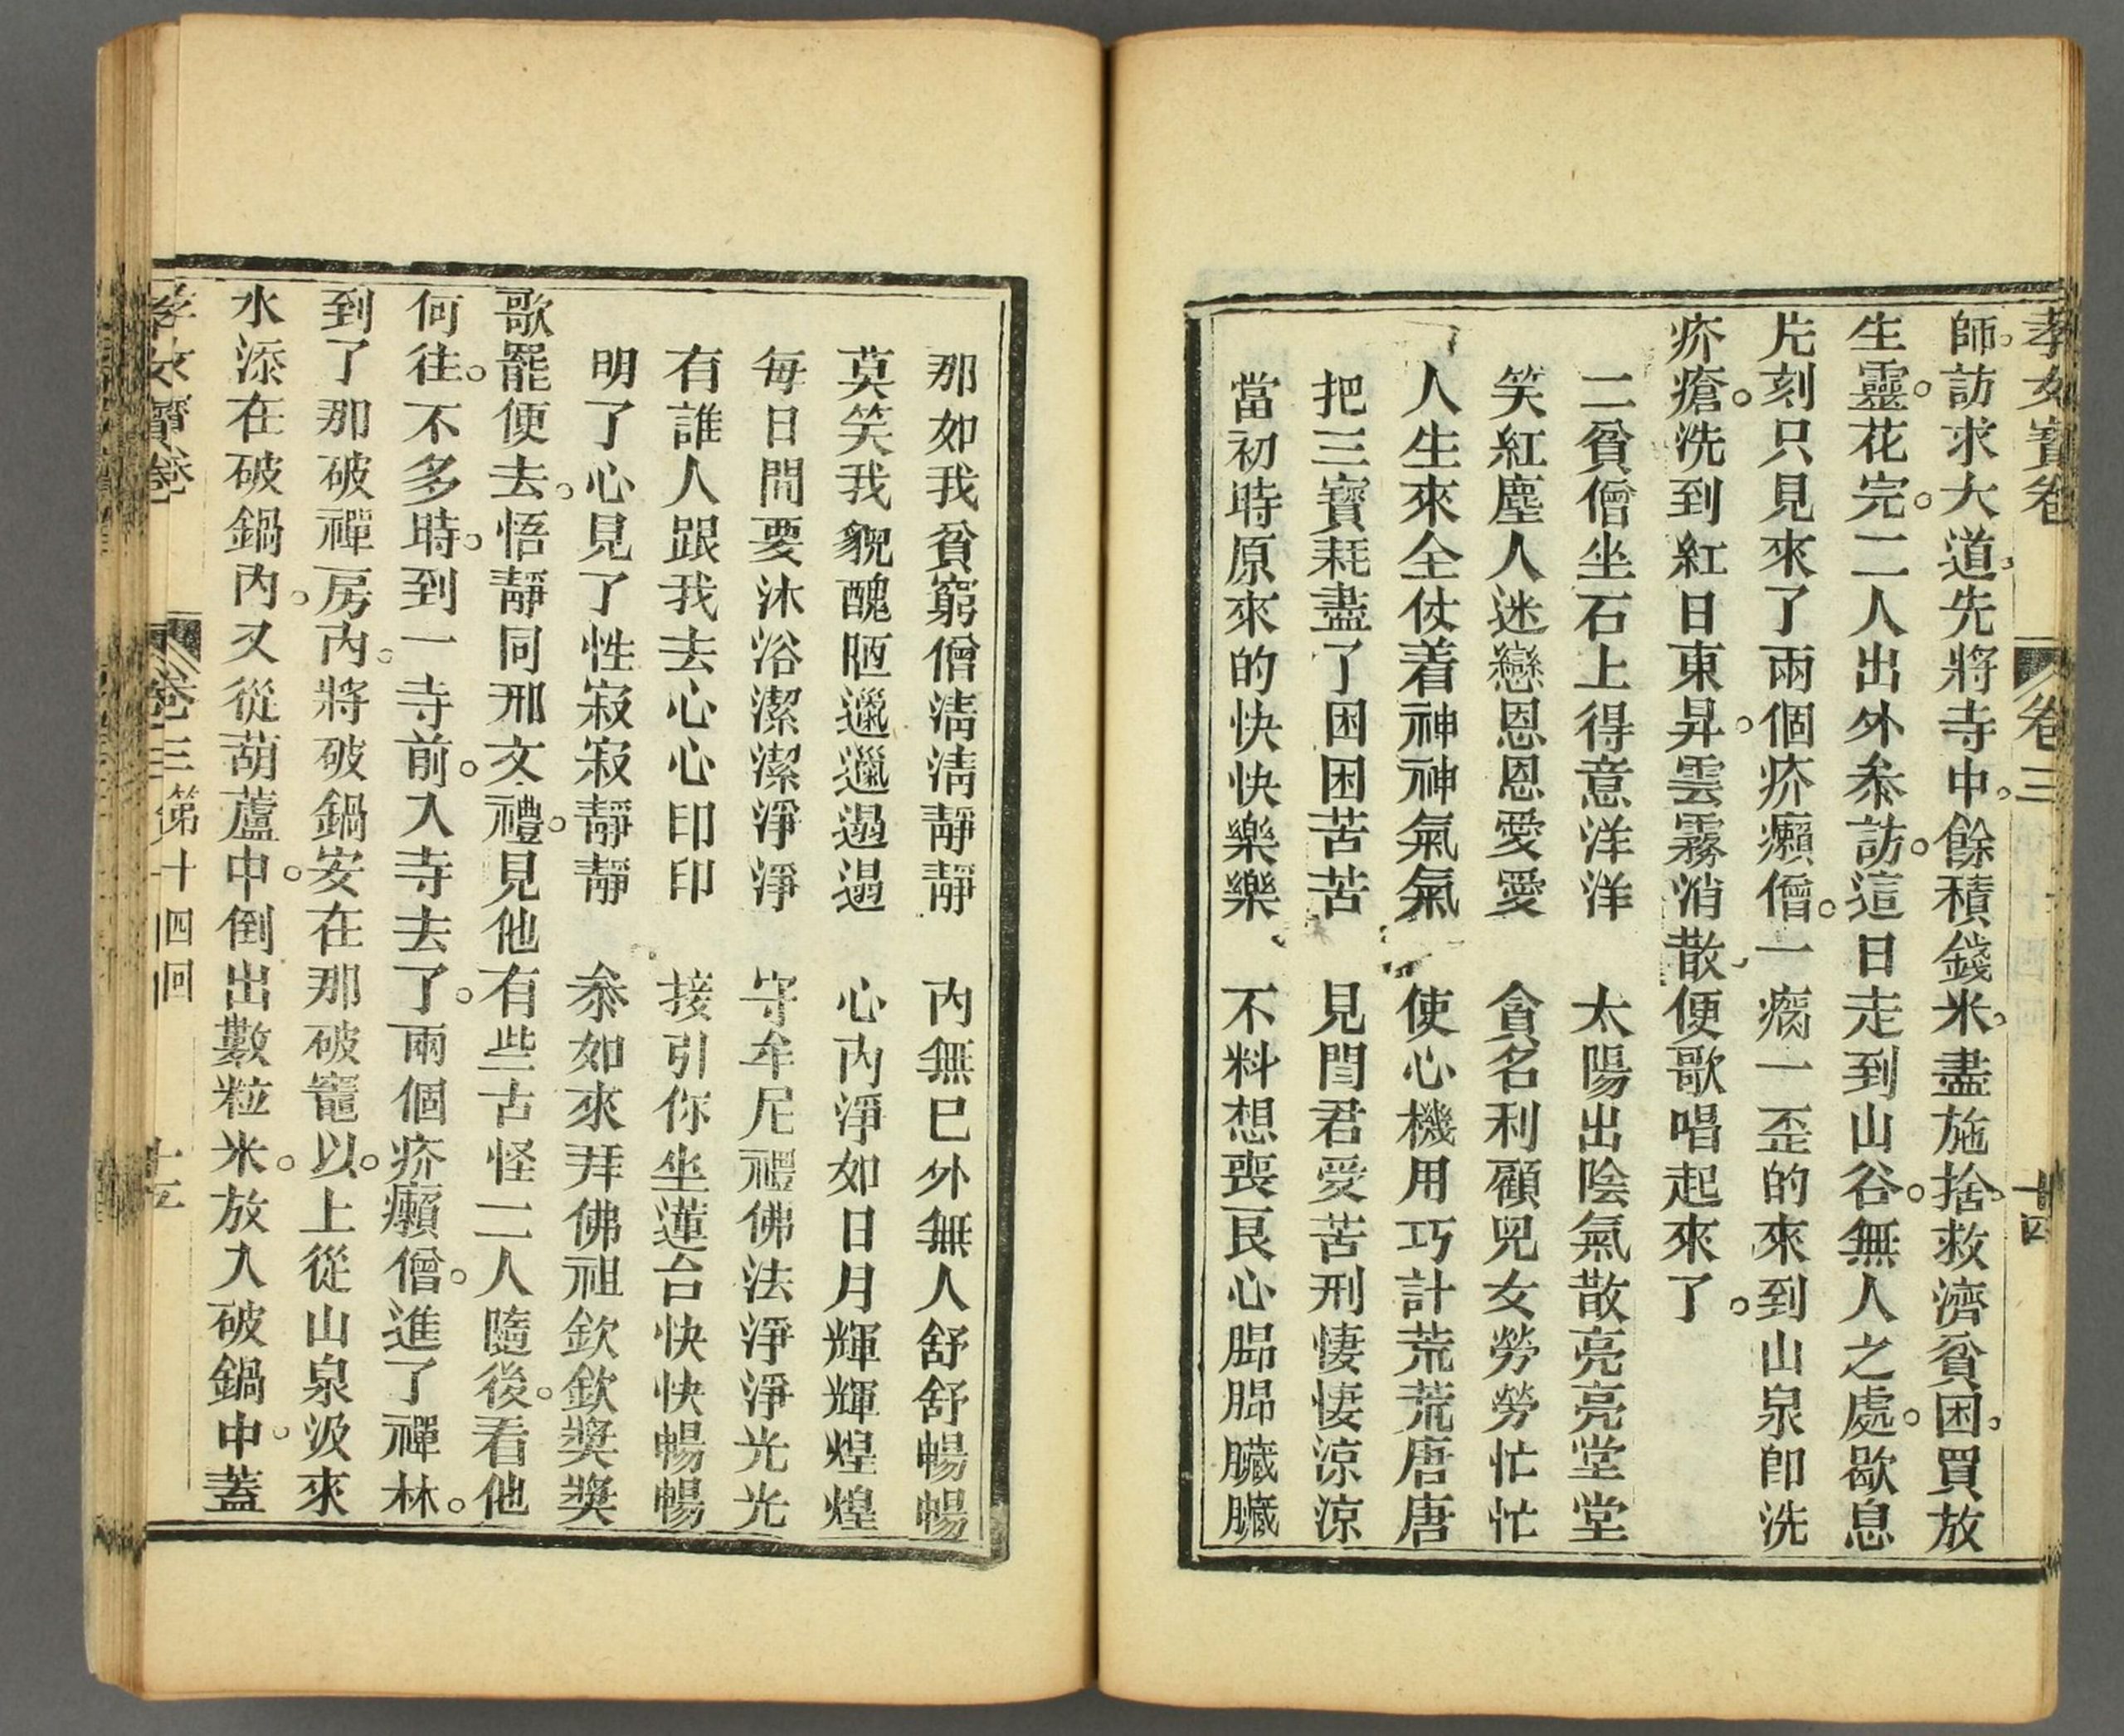 孝女寶卷 卷三 十四
師。訪求大道。先將寺中。餘積錢米。盡施捨。救濟貧困。買放
生靈。花完。二人出外叅訪。這日走到山谷。無人之處。歇息
片刻只見來了兩個疥癩僧。一瘸一歪的來到山泉卽洗
疥瘡。洗到紅日東昇。雲霧消散。便歌唱起來了。
二貧僧坐石上得意洋洋 太陽出陰氣散亮亮堂堂
笑紅塵人迷戀恩恩愛愛 貪名利顧兒女勞勞忙忙
人生來全仗着神神氣氣 使心機用巧計荒荒唐唐
把三寶耗盡了困困苦苦 見閻君受苦刑悽悽涼涼
當初時原來的快快樂樂 不料想喪良心腌腌臟臟
那如我貧窮僧清清靜靜 內無已外無人舒舒暢暢
莫笑我貌醜陋邋邋遢遢 心內淨如日月輝輝煌煌
每日間要沐浴潔潔淨淨 守牟尼禮佛法淨淨光光
有誰人跟我去心心印印 接引你坐蓮台快快暢暢
明了心見了性寂寂靜靜 叅如來拜佛祖欽欽獎獎
歌罷便去。悟靜同邢文禮。見他有些古怪二人隨後。看他
何往。不多時。到一寺前。入寺去了。兩個疥癩僧。進了禪林。
到了那破禪房內。將破鍋安在那破竈以。上從山泉汲來
水添在破鍋內。又從葫蘆中。倒出數粒米。放入破鍋中。蓋
孝女寶卷 卷三 第十四回 十五